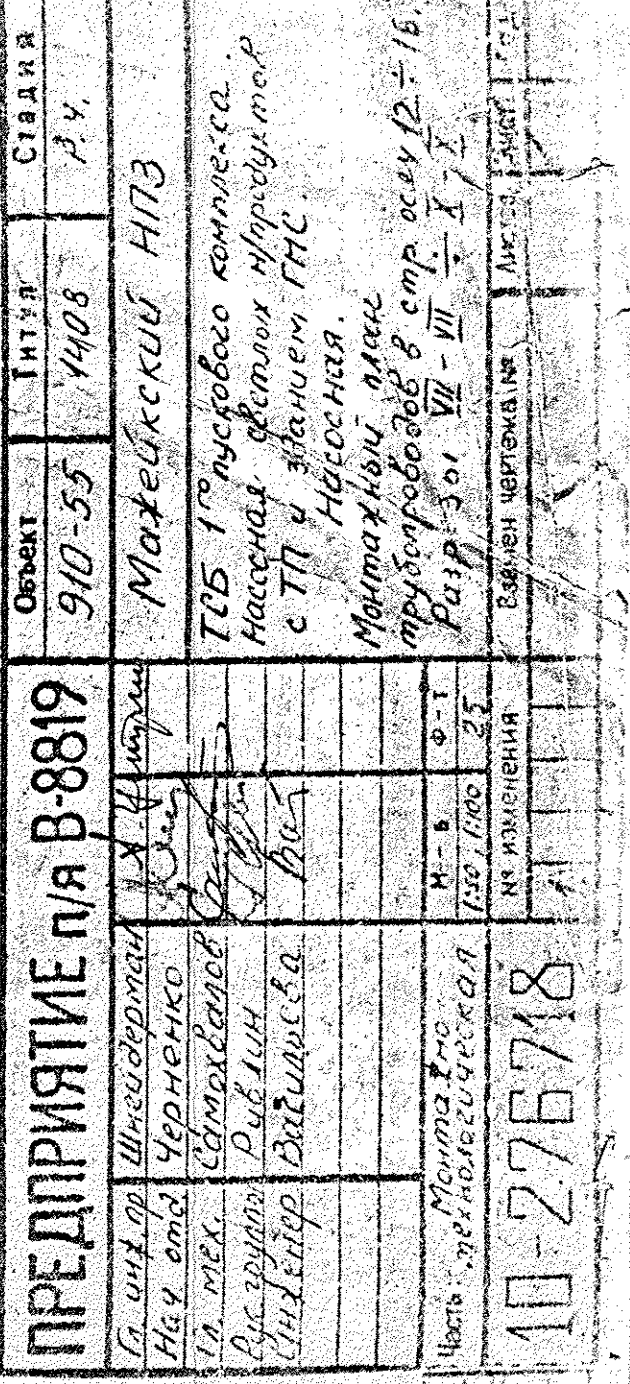 ПРЕДПРИЯТИЕ п/я В-8819
Объект Титул Стадия
910-55 1408 Р.Ч.
Гл. инж. пр. Шнейдерман
Нач. отд. Черненко
Гл. мех. Самохвалов
Рук. группы Ривлин
Инженер Васильева
Мажейкский НПЗ
ТСБ 1го пускового комплекса.
Насосная светлых н/продуктов
с ТП и зданием ГМС.
Насосная.
Монтажный план
трубопроводов в стр. осях 12÷16.
VII - VII ÷ X - X
Часть: Монтажно-
технологическая
М-б Ф-т
1:50, 1:100 25
10-276718
№ изменения
Взамен чертежа №
Листов Лист